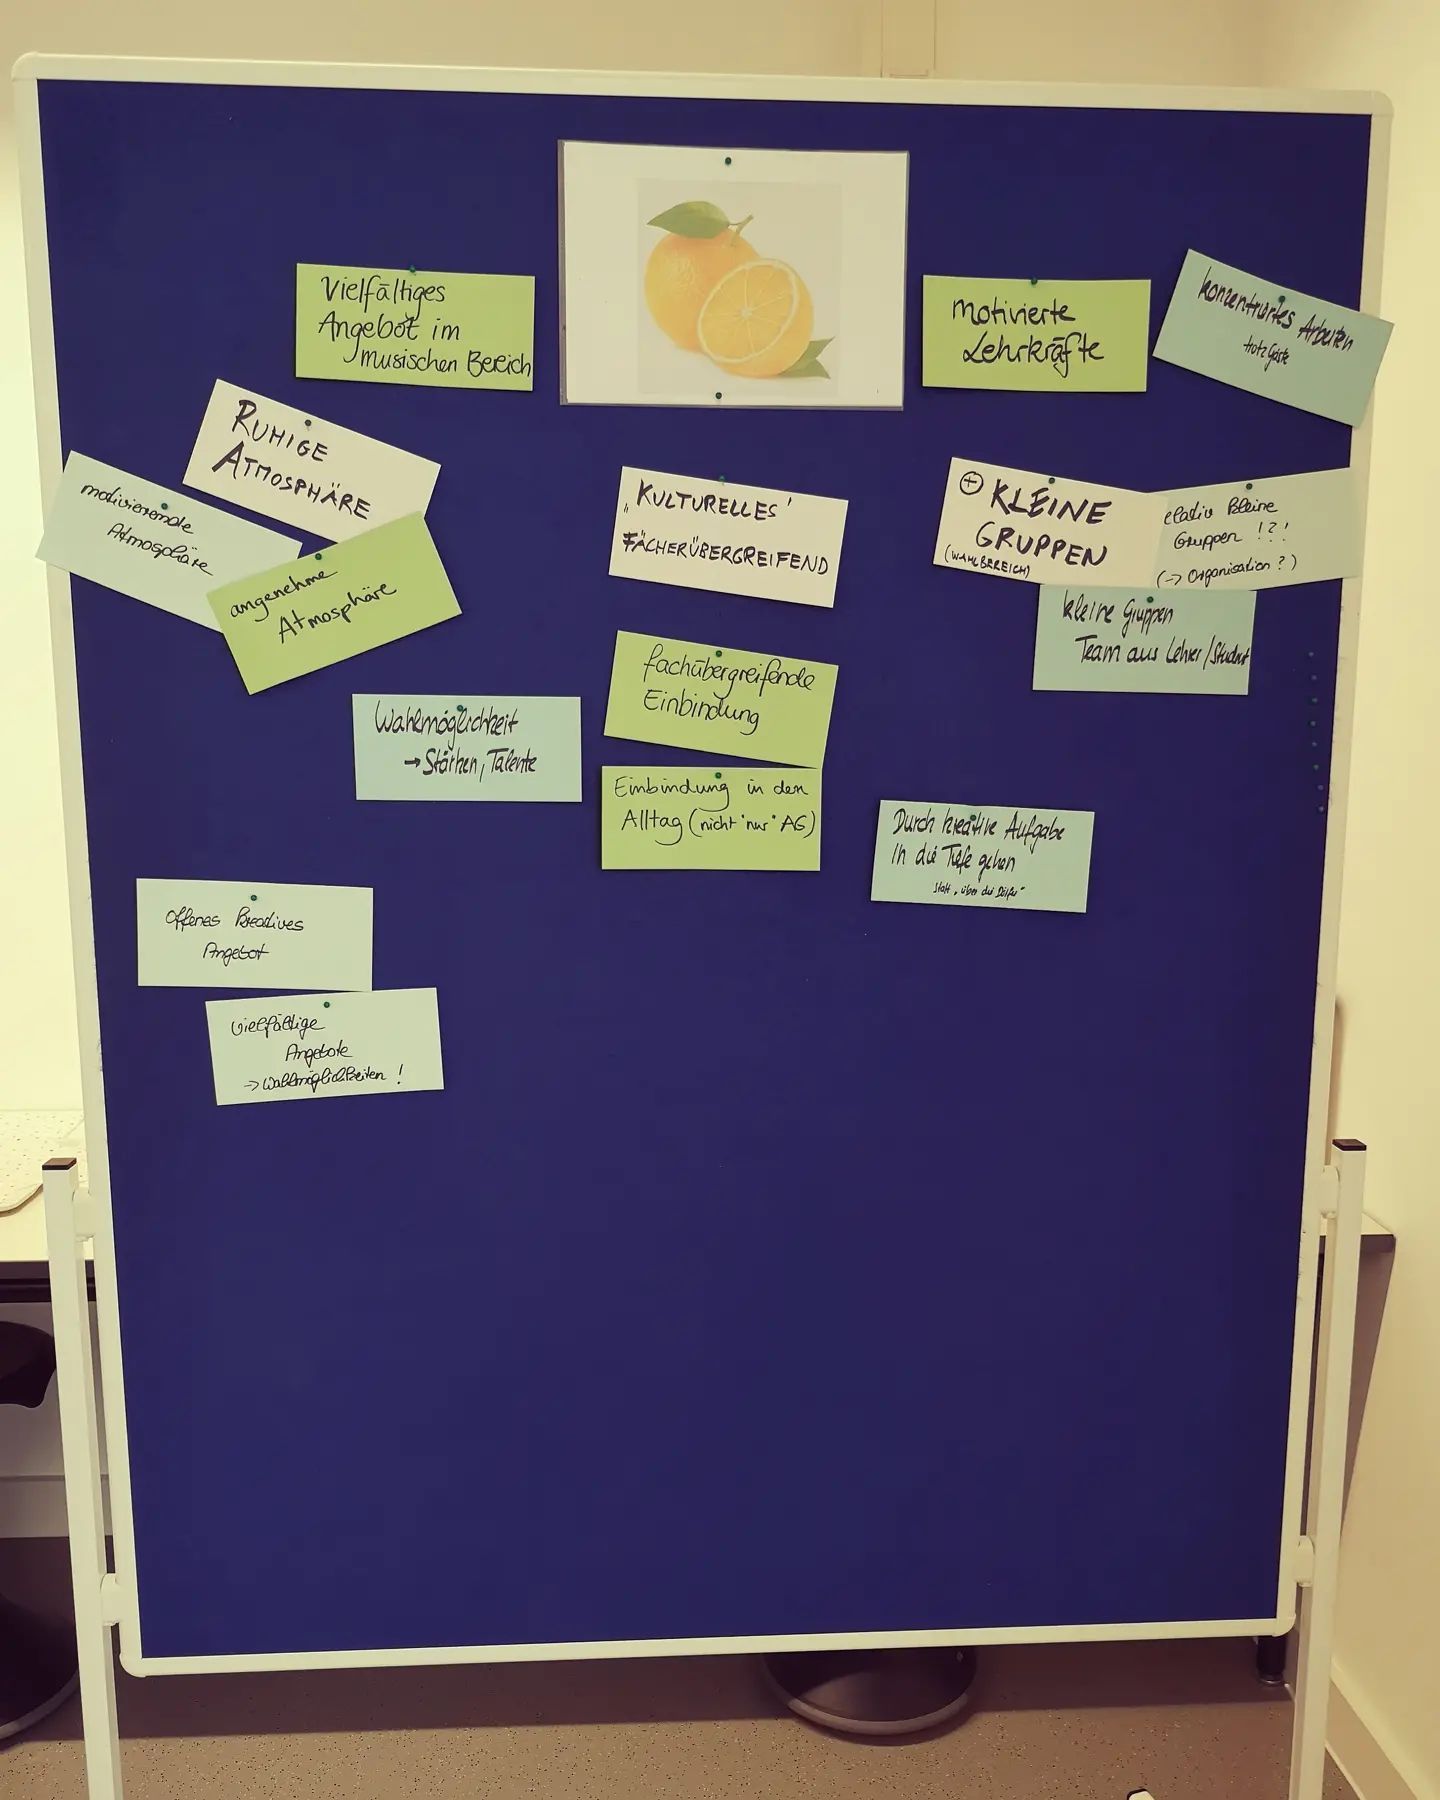 Vielfältiges
Angebot im
musischen Bereich
motivierte
Lehrkräfte
konzentriertes Arbeiten
trotz Gäste
RUHIGE
ATMOSPHÄRE
motivierende
Atmosphäre
angenehme
Atmosphäre
„KULTURELLES'
FÄCHERÜBERGREIFEND
+ KLEINE
GRUPPEN
(WAHLBEREICH)
elativ kleine
Gruppen !?!
(→ Organisation?)
kleine Gruppen
Team aus Lehrer/Student
fachübergreifende
Einbindung
Wahlmöglichkeit
→ Stärken, Talente
Einbindung in den
Alltag (nicht "nur" AG)
Durch kreative Aufgabe
In die Tiefe gehen
statt „über die Dörfer"
Offenes kreatives
Angebot
vielfältige
Angebote
→ Wahlmöglichkeiten !